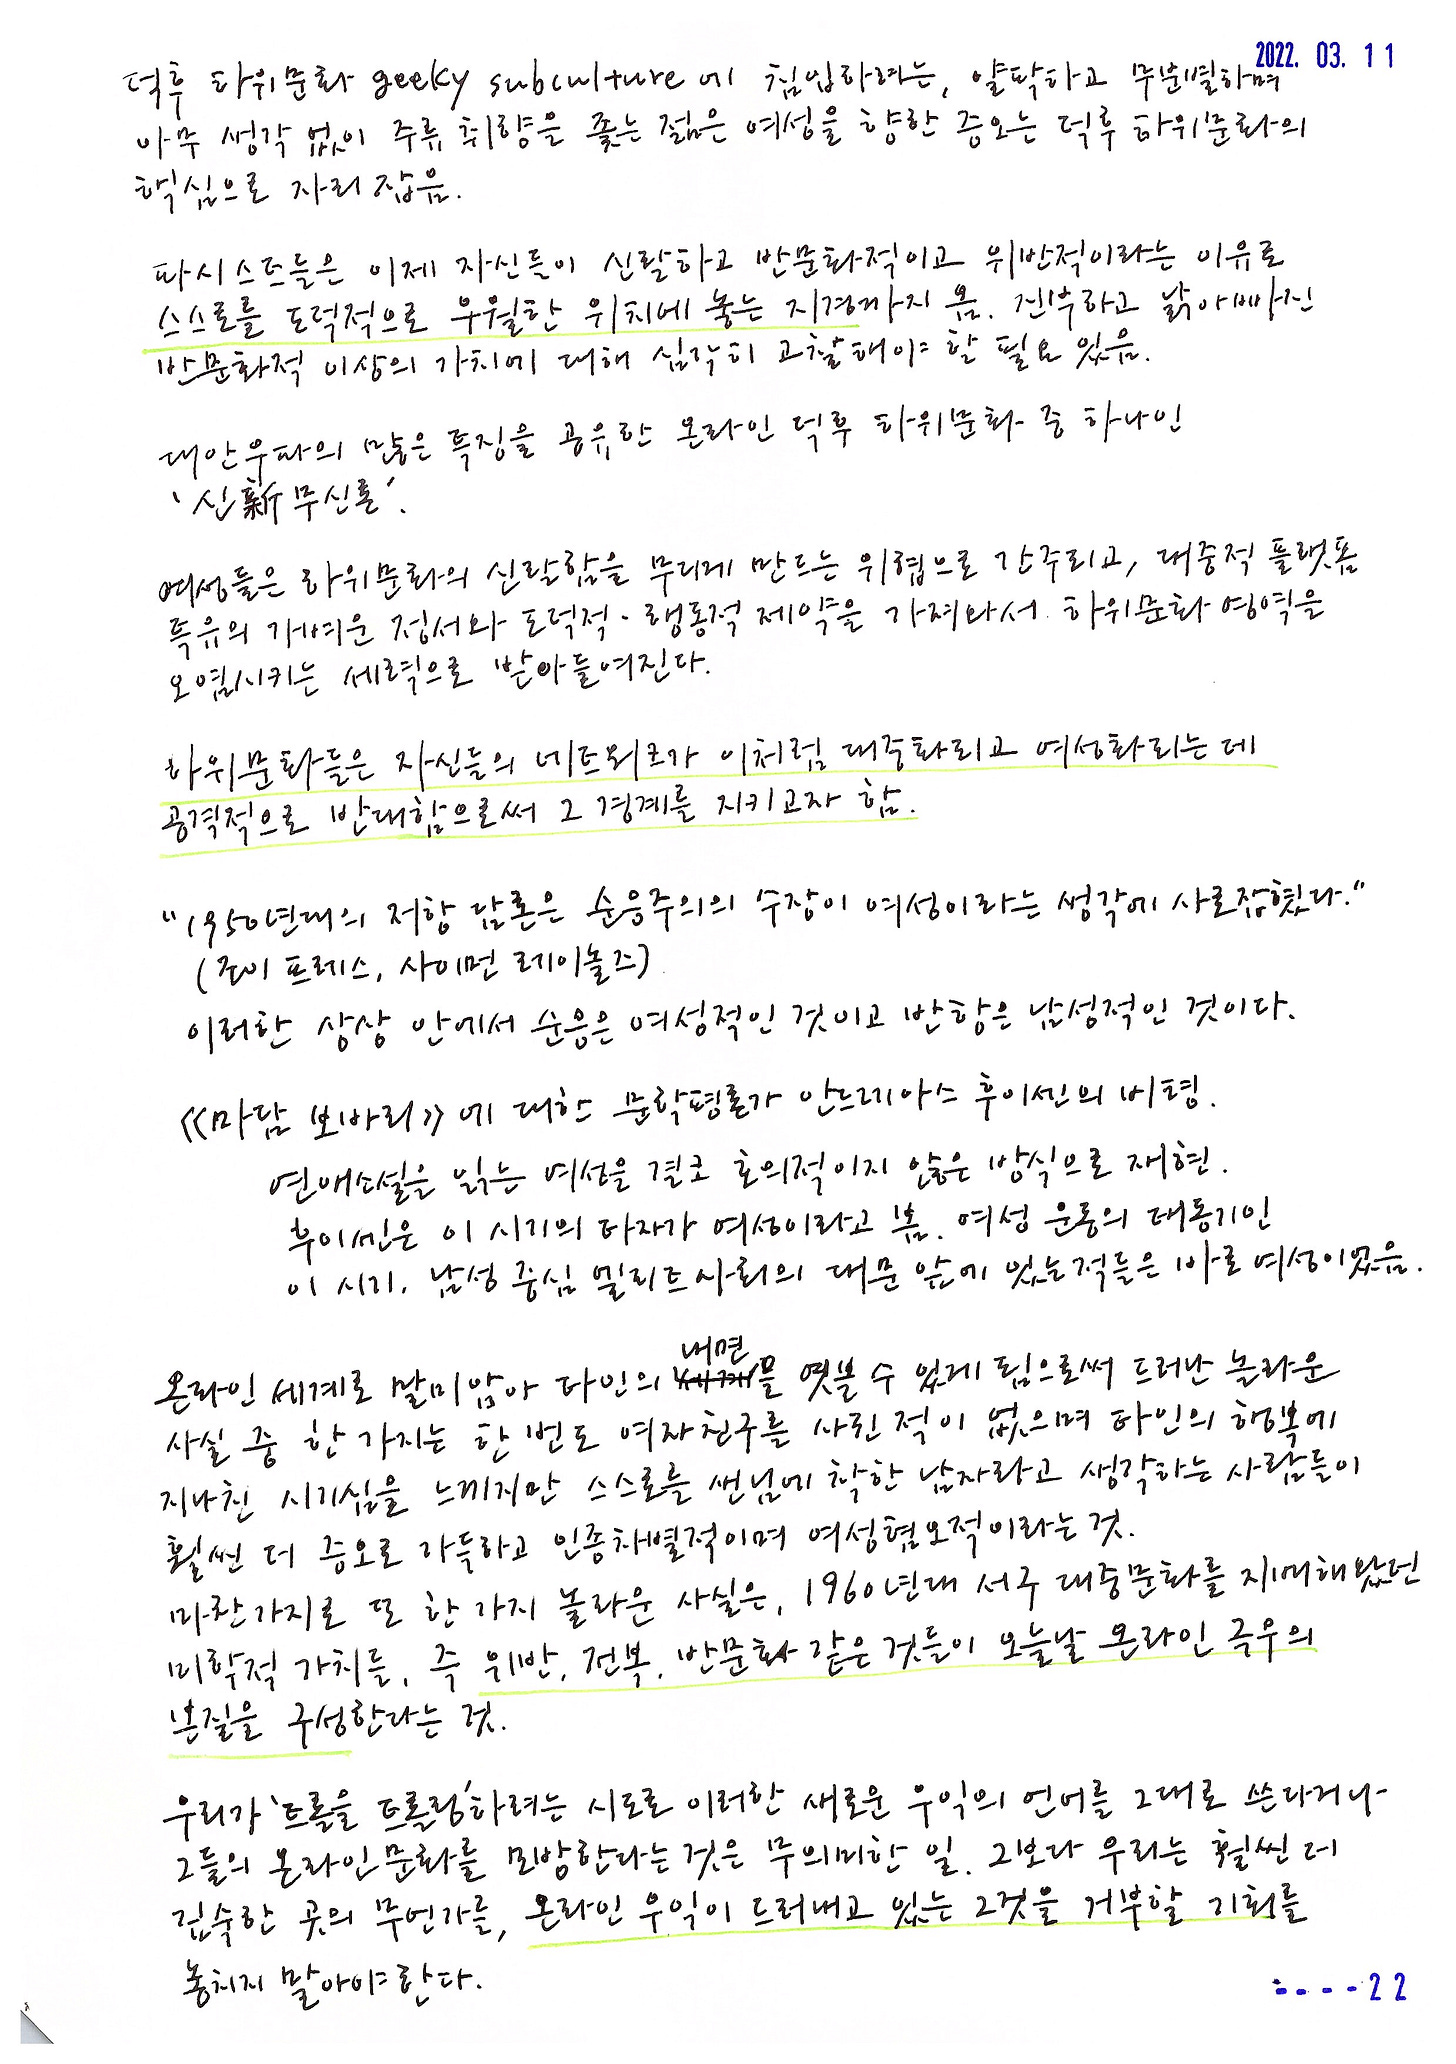 2022. 03. 11
덕후 하위문화 geeky subculture에 침입하려는, 얄팍하고 무분별하며
아무 생각 없이 주류 취향을 좇는 젊은 여성을 향한 증오는 덕후 하위문화의
핵심으로 자리 잡음.
파시스트들은 이제 자신들이 신랄하고 반문화적이고 위반적이라는 이유로
스스로를 도덕적으로 우월한 위치에 놓는 지경까지 옴. 진부하고 낡아빠진
반문화적 이상의 가치에 대해 심각히 고찰해야 할 필요 있음.
대안우파의 많은 특징을 공유한 온라인 덕후 하위문화 중 하나인
'신新무신론'.
여성들은 하위문화의 신랄함을 무디게 만드는 위협으로 간주되고, 대중적 플랫폼
특유의 가벼운 정서와 도덕적·행동적 제약을 가져와서 하위문화 영역을
오염시키는 세력으로 받아들여진다.
하위문화들은 자신들의 네트워크가 이처럼 대중화되고 여성화되는 데
공격적으로 반대함으로써 그 경계를 지키고자 함.
"1950년대의 저항 담론은 순응주의의 수장이 여성이라는 생각에 사로잡혔다."
(조이 프레스, 사이먼 레이놀즈)
이러한 상상 안에서 순응은 여성적인 것이고 반항은 남성적인 것이다.
《마담 보바리》에 대한 문학평론가 안드레아스 후이센의 비평.
연애소설을 읽는 여성을 결코 호의적이지 않은 방식으로 재현.
후이센은 이 시기의 타자가 여성이라고 봄. 여성 운동의 태동기인
이 시기, 남성 중심 엘리트 사회의 대문 앞에 있는 적들은 바로 여성이었음.
온라인 세계로 말미암아 타인의 내면을 엿볼 수 있게 됨으로써 드러난 놀라운
사실 중 한 가지는 한 번도 여자친구를 사귄 적이 없으며 타인의 행복에
지나친 시기심을 느끼지만 스스로를 샌님에 착한 남자라고 생각하는 사람들이
훨씬 더 증오로 가득하고 인종차별적이며 여성혐오적이라는 것.
마찬가지로 또 한 가지 놀라운 사실은, 1960년대 서구 대중문화를 지배해왔던
미학적 가치들, 즉 위반, 전복, 반문화 같은 것들이 오늘날 온라인 극우의
본질을 구성한다는 것.
우리가 '트롤을 트롤링'하려는 시도로 이러한 새로운 우익의 언어를 그대로 쓴다거나
그들의 온라인 문화를 모방한다는 것은 무의미한 일. 그보다 우리는 훨씬 더
깊숙한 곳의 무언가를, 온라인 우익이 드러내고 있는 그것을 거부할 기회를
놓치지 말아야 한다.
22